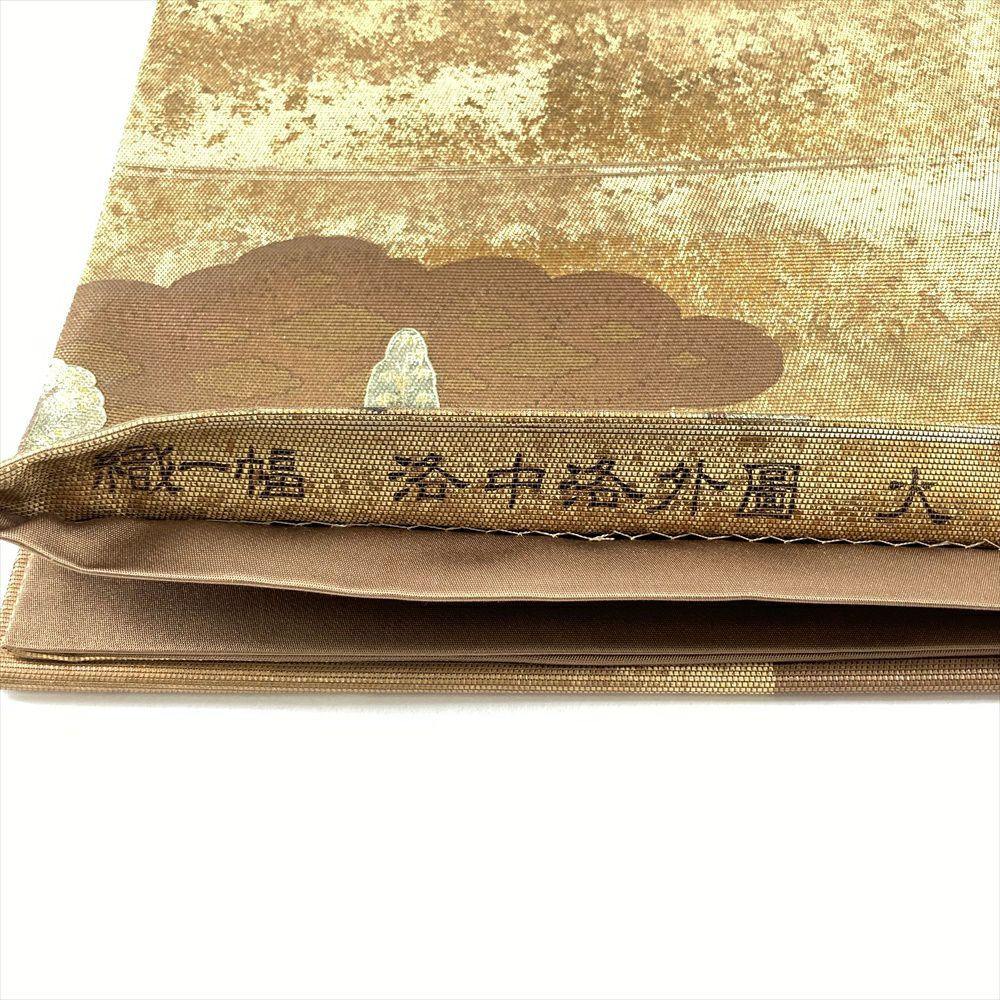 織一幅　洛中洛外圖　火